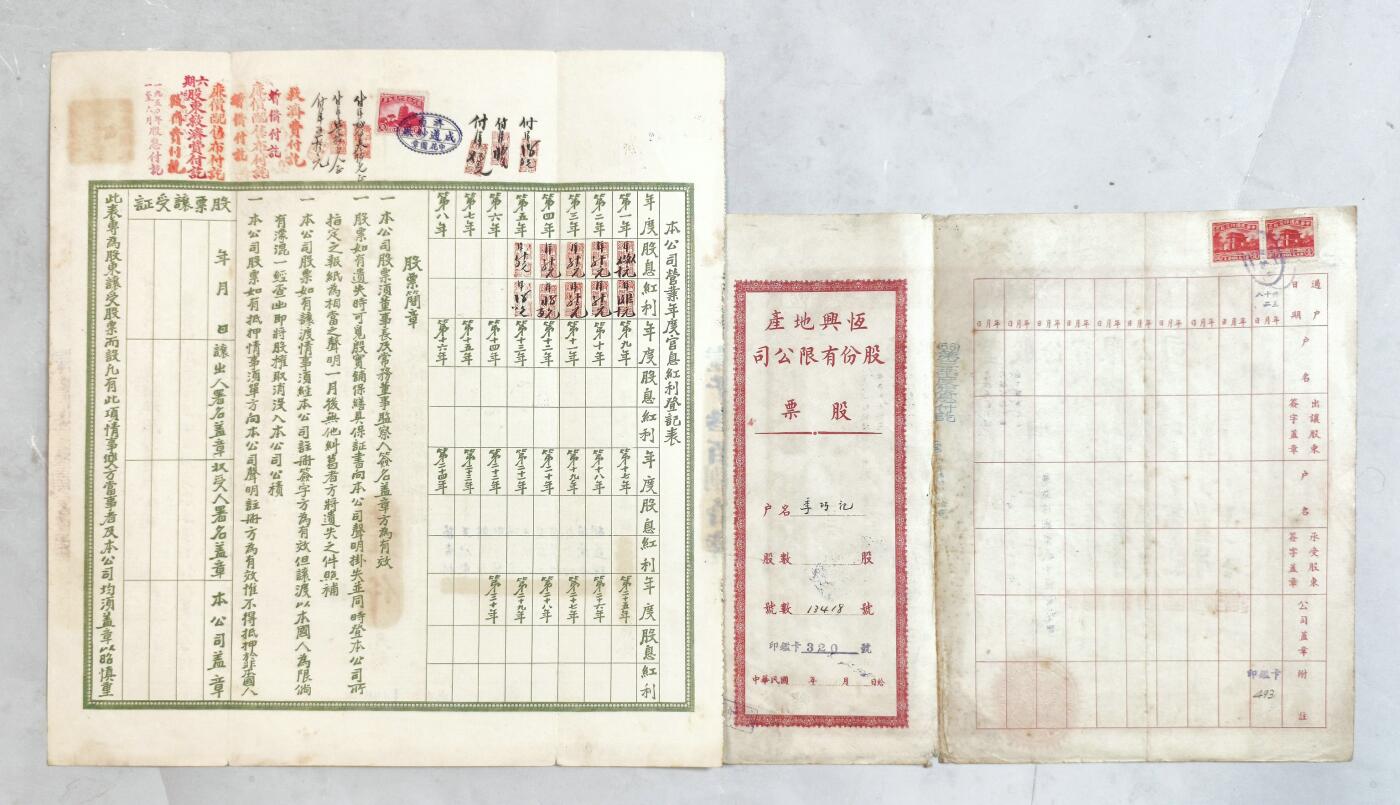 六期
股東救濟費付訖
一九五〇年股息付訖
一至六月
救濟費付訖
廉價配售布付訖
折價付訖
廉價配售布付訖
折價付訖
救濟費付訖
成通紗廠
印花圖章
本公司營業年度官息紅利登記表
年度 股息 紅利 年度 股息 紅利 年度 股息 紅利 年度 股息 紅利
第一年 第九年 第十七年 第二十五年
第二年 第十年 第十八年 第二十六年
第三年 第十一年 第十九年 第二十七年
第四年 第十二年 第二十年 第二十八年
第五年 第十三年 第二十一年 第二十九年
第六年 第十四年 第二十二年 第三十年
第七年 第十五年 第二十三年
第八年 第十六年 第二十四年
股票簡章
一 本公司股票須董事長及常務董事監察人簽名盖章方為有效
一 股票如有遺失時可覓殷實鋪保繕具保証書向本公司聲明掛失並同時登本公司所
指定之報紙為相當之聲明一月後無他糾葛者方將遺失之件照補
一 本公司股票如有讓渡情事須經本公司註冊簽字方為有效但讓渡以本國人為限倘
有濛混一經查出即將股權取消没入本公司公積
一 本公司股票如有抵押情事須單方向本公司聲明註冊方為有效惟不得抵押於非國人
股票讓受証
年 月 日 讓出人署名盖章 收受人署名盖章 本公司盖章
此表專為股東讓受股票而設凡有此項情事雙方當事者及本公司均須盖章以昭慎重
恆興地產
股份有限公司
股票
户名 季巧記
股數 股
號數 13418 號
印鑑卡 320 號
中華民國 年 月 日給
過戶日期
戶名
出讓股東簽字盖章
戶名
承受股東簽字盖章
公司盖章
附註
年月日
年月日
年月日
年月日
年月日
年月日
年月日
年月日
年月日
年月日
印鑑卡
493